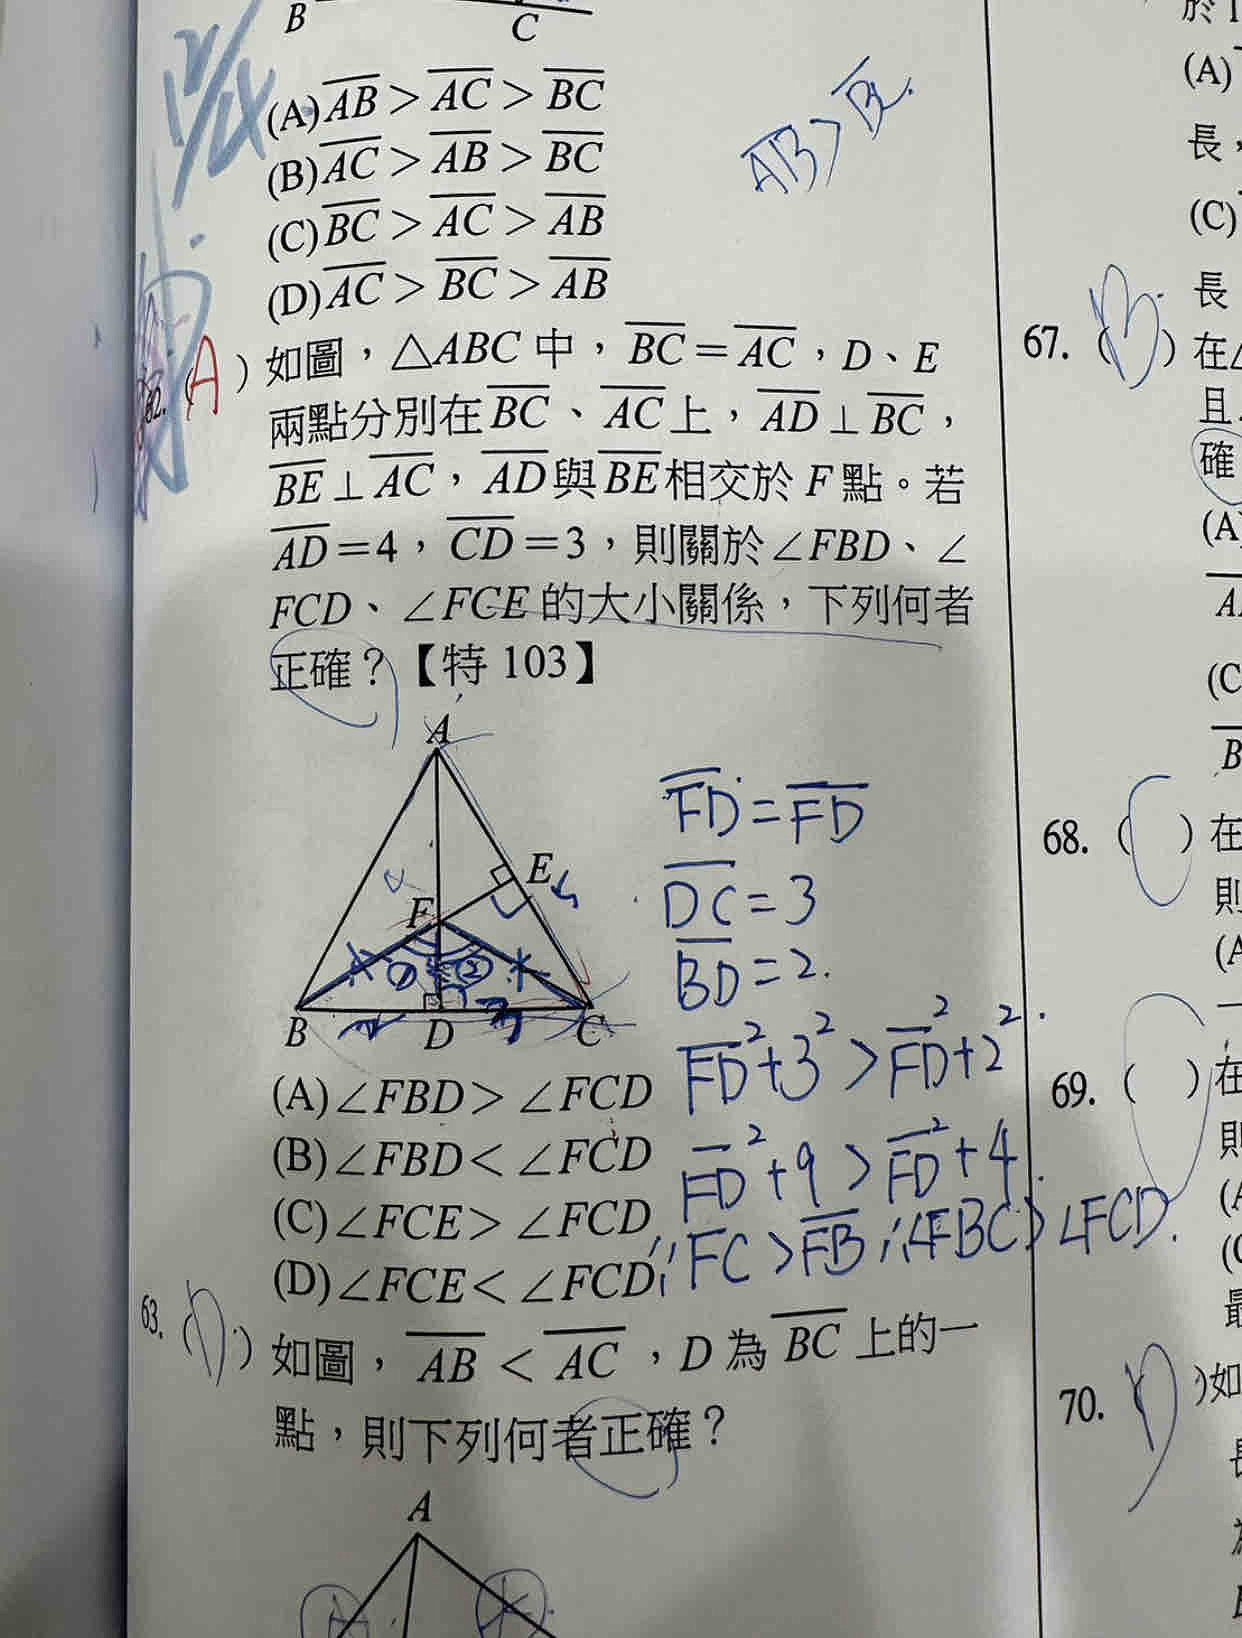 B
C
(A) AB > AC > BC
(B) AC > AB > BC
(C) BC > AC > AB
(D) AC > BC > AB
AB > BC.
62. (A) 如圖，△ABC 中，BC = AC，D、E
兩點分別在 BC、AC 上，AD ⊥ BC，
BE ⊥ AC，AD 與 BE 相交於 F 點。若
AD = 4，CD = 3，則關於 ∠FBD、∠
FCD、∠FCE 的大小關係，下列何者
正確？【特 103】
A
E
F
① ②
B D C
3
FD = FD
DC = 3
BD = 2.
FD² + 3² > FD² + 2²
FD² + 9 > FD² + 4
∵ FC > FB ∴ ∠FBC > ∠FCD.
(A) ∠FBD > ∠FCD
(B) ∠FBD < ∠FCD
(C) ∠FCE > ∠FCD
(D) ∠FCE < ∠FCD
63. ( ) 如圖，AB < AC，D 為 BC 上的一
點，則下列何者正確？
A
(A)
長，
(C)
長
67. ( ) 在△
且
確
(A)
(C
B
68. ( ) 在
則
(A
69. ( ) 在
則
(A
(C
最
70. ( ) 如
長